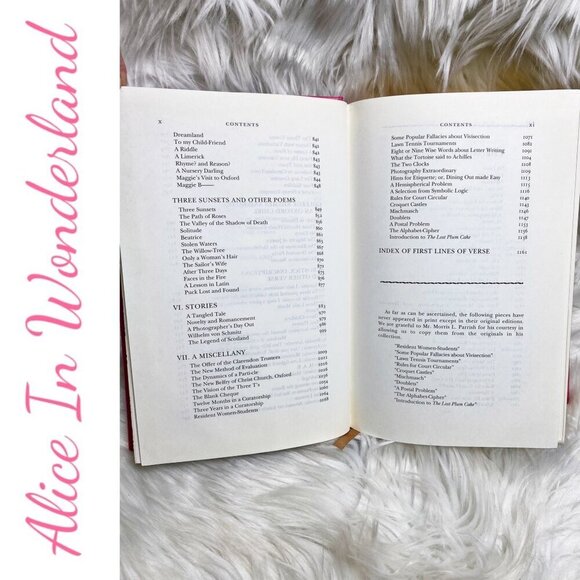 Alice In Wonderland
x CONTENTS
Dreamland
To my Child-Friend
A Riddle
A Limerick
Rhyme? and Reason?
A Nursery Darling
Maggie's Visit to Oxford
Maggie B—— 848
THREE SUNSETS AND OTHER POEMS
Three Sunsets
The Path of Roses 852
The Valley of the Shadow of Death 856
Solitude
Beatrice
Stolen Waters
The Willow-Tree
Only a Woman's Hair
The Sailor's Wife
After Three Days
Faces in the Fire
A Lesson in Latin
Puck Lost and Found
VI. STORIES
A Tangled Tale
Novelty and Romancement 970
A Photographer's Day Out 979
Wilhelm von Schmitz
The Legend of Scotland
VII. A MISCELLANY
The Offer of the Clarendon Trustees 1009
The New Method of Evaluation 1011
The Dynamics of a Parti-cle 1016
The New Belfry of Christ Church, Oxford 1026
The Vision of the Three T's 1036
The Blank Cheque
Twelve Months in a Curatorship
Three Years in a Curatorship
Resident Women-Students 1068
CONTENTS xi
Some Popular Fallacies about Vivisection 1071
Lawn Tennis Tournaments
Eight or Nine Wise Words about Letter Writing 1091
What the Tortoise said to Achilles 1104
The Two Clocks 1108
Photography Extraordinary 1109
Hints for Etiquette; or, Dining Out made Easy 1113
A Hemispherical Problem
A Selection from Symbolic Logic
Rules for Court Circular
Croquet Castles
Mischmasch
Doublets
A Postal Problem
The Alphabet-Cipher 1136
Introduction to The Lost Plum Cake 1138
INDEX OF FIRST LINES OF VERSE 1161
As far as can be ascertained, the following pieces have
never appeared in print except in their original editions.
We are grateful to Mr. Morris L. Parrish for his courtesy in
allowing us to copy them from the originals in his
collection.
"Resident Women-Students"
"Some Popular Fallacies about Vivisection"
"Lawn Tennis Tournaments"
"Rules for Court Circular"
"Croquet Castles"
"Mischmasch"
"Doublets"
"A Postal Problem"
"The Alphabet-Cipher"
"Introduction to The Lost Plum Cake"